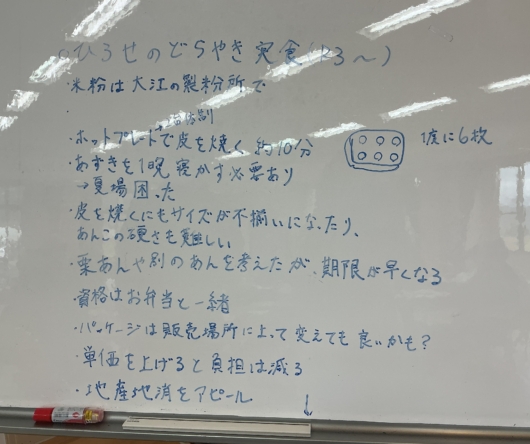 ○ひろせのどらやき実食(R3～)
・米粉は大江の製粉所で
・
・ホットプレートで皮を焼く 約10分
1度に6枚
・あずきを1晩寝かす必要あり
→夏場困った
・皮を焼くにもサイズが不揃いになったり、
あんこの硬さも難しい
・栗あんや別のあんを考えたが、期限が早くなる
・資格はお弁当と一緒
・パッケージは販売場所によって変えても良いかも?
・単価を上げると負担は減る
・地産地消をアピール ↓